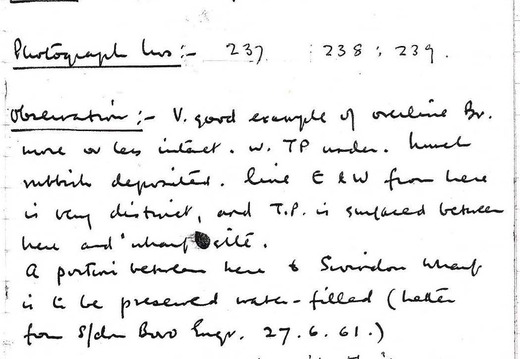 Photograph Nos:- 237 : 238 : 239.
Observation:- V. good example of overline Br.
more or less intact. w. TP under. Much
rubbish deposited. Line E & W from here
is very distinct, and T.P. is surfaced between
here and wharf site.
A portion between here & Swindon Wharf
is to be preserved water-filled (letter
from S/dn Boro Engr. 27.6.61.)